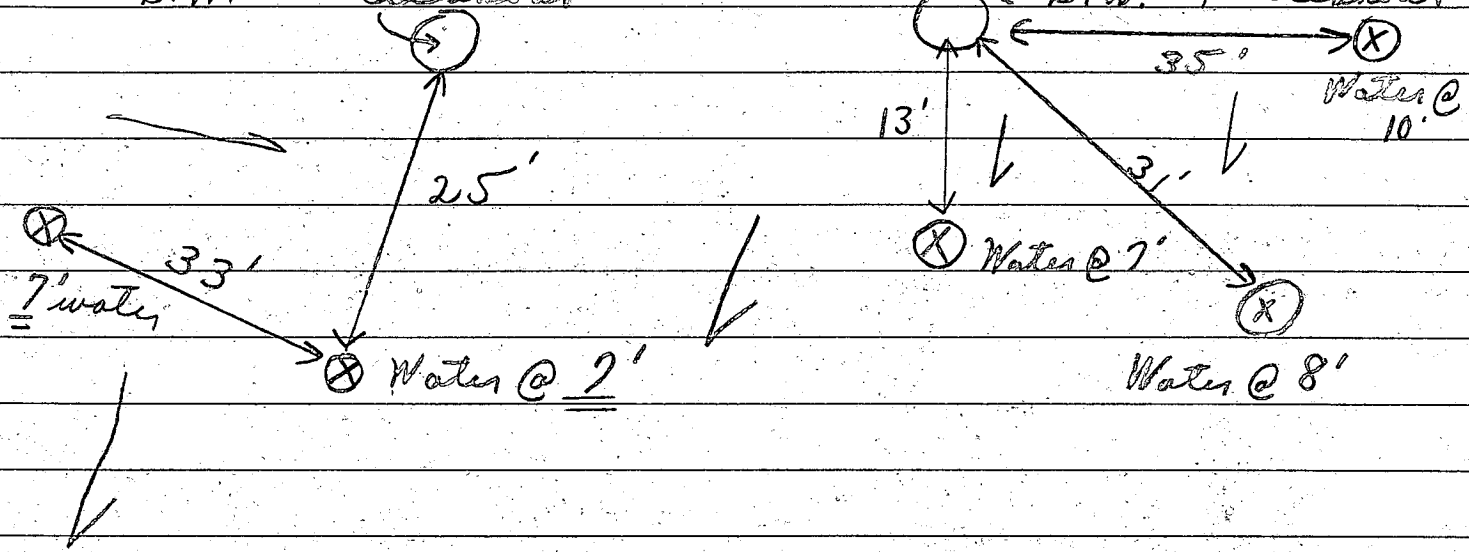 B.M.
B.M.
35'
Water @
10'
13'
25'
31'
33'
Water @ 7'
7' water
Water @ 7'
Water @ 8'